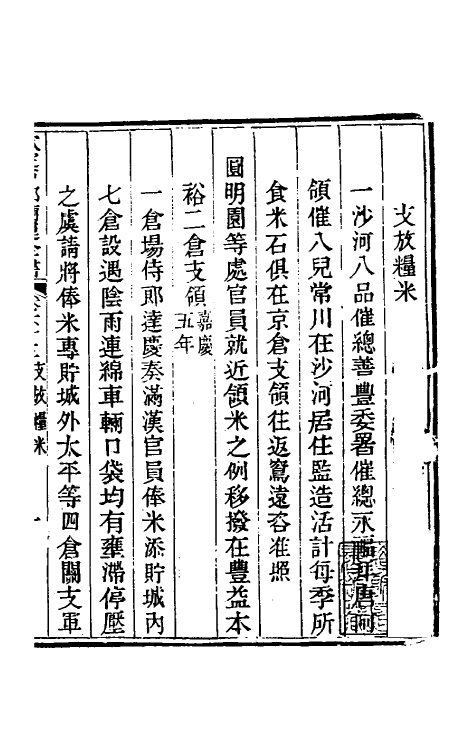 支放糧米
一沙河八品催總善豐委署催總永福珥唐阿
領催八兒常川在沙河居住監造活計每季所
食米石俱在京倉支領往返窵遠咨准照
圓明園等處官員就近領米之例移撥在豐益本
裕二倉支領嘉慶
五年
一倉場侍郎達慶奏滿漢官員俸米添貯城内
七倉設遇陰雨連綿車輛口袋均有壅滯停壓
之虞請將俸米專貯城外太平等四倉關支軍
支放糧米
一